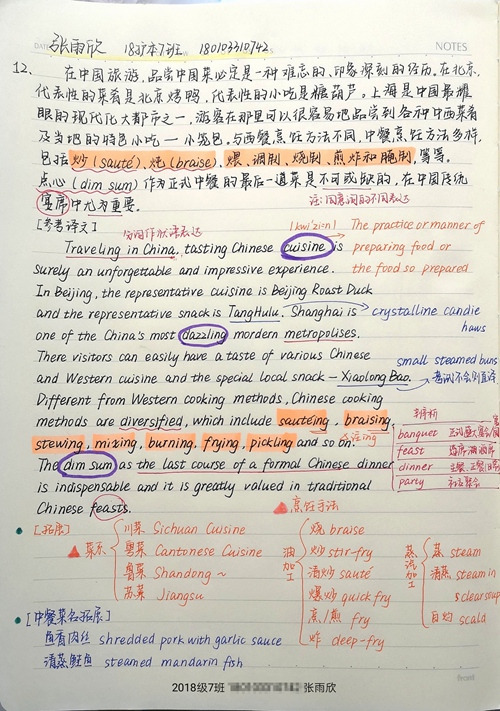 DATE 张雨欣 18级本7班 180103310742 NOTES
12、 在中国旅游,品尝中国菜必定是一种难忘的、印象深刻的经历。在北京,
代表性的菜肴是北京烤鸭,代表性的小吃是糖葫芦。上海是中国最耀
眼的现代化大都市之一,游客在那里可以很容易地品尝到各种中西菜肴
及当地的特色小吃—小笼包。与西餐烹饪方法不同,中餐烹饪方法多样,
包括炒(sauté)、炖(braise)、煨、调制、烧制、煎炸和腌制,等等。
点心(dim sum)作为正式中餐的最后一道菜是不可或缺的,在中国传统
宴席中尤为重要。
[参考译文]
Traveling in China, tasting Chinese cuisine is
surely an unforgettable and impressive experience.
The practice or manner of
preparing food or
the food so prepared
In Beijing, the representative cuisine is Beijing Roast Duck
and the representative snack is TangHulu. Shanghai is
crystalline candie
haws
one of the China's most dazzling mordern metropolises.
There visitors can easily have a taste of various Chinese
and Western cuisine and the special local snack – Xiaolong Bao.
small steamed buns
Different from Western cooking methods, Chinese cooking
methods are diversified, which include sauteing, braising
stewing, mixing, burning, frying, pickling and so on.
The dim sum as the last course of a formal Chinese dinner
is indispensable and it is greatly valued in traditional
Chinese feasts.
辨析
banquet
feast
dinner
party
烹饪手法
[拓展]
菜系
川菜 Sichuan Cuisine
粤菜 Cantonese Cuisine
粤菜 Shandong ~
苏菜 Jiangsu
油加工
烧 braise
炒 stir-fry
清炒 sauté
爆炒 quick fry
煎 fry
炸 deep-fry
蒸 steam
清蒸 steam in
clear soup
scald
[中餐菜名拓展]
鱼香肉丝 shredded pork with garlic sauce
清蒸鲑鱼 steamed mandarin fish
2018级7班 张雨欣